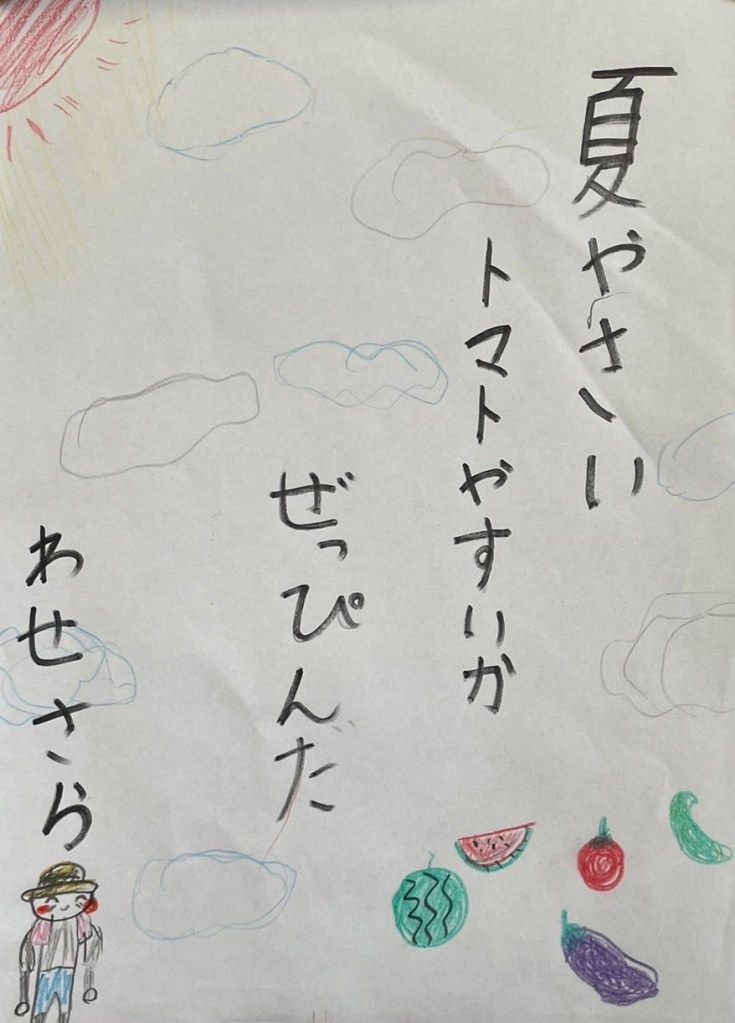 夏やさい
トマトやすいか
ぜっぴんだ
わせさら